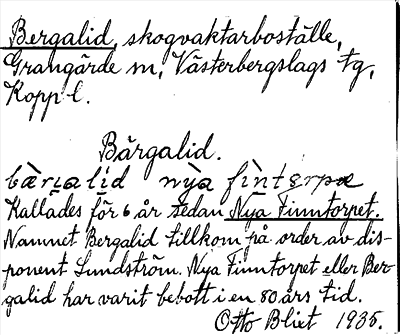 Bergalid, skogvaktarboställe,
Grangärde sn, Västerbergslags tg,
Kopp l.
Bärgalid.
bæ̀rɡalíd nỳa fìntɵrpæ
Kallades för 6 år sedan Nya Finntorpet.
Namnet Bergalid tillkom på order av dis-
ponent Lundström. Nya Finntorpet eller Ber-
galid har varit bebott i en 80 års tid.
Otto Bliet 1935.